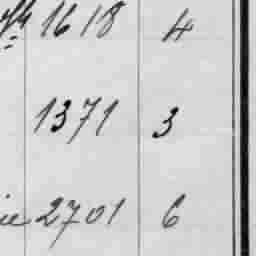 1618 4
1371 3
2701 6